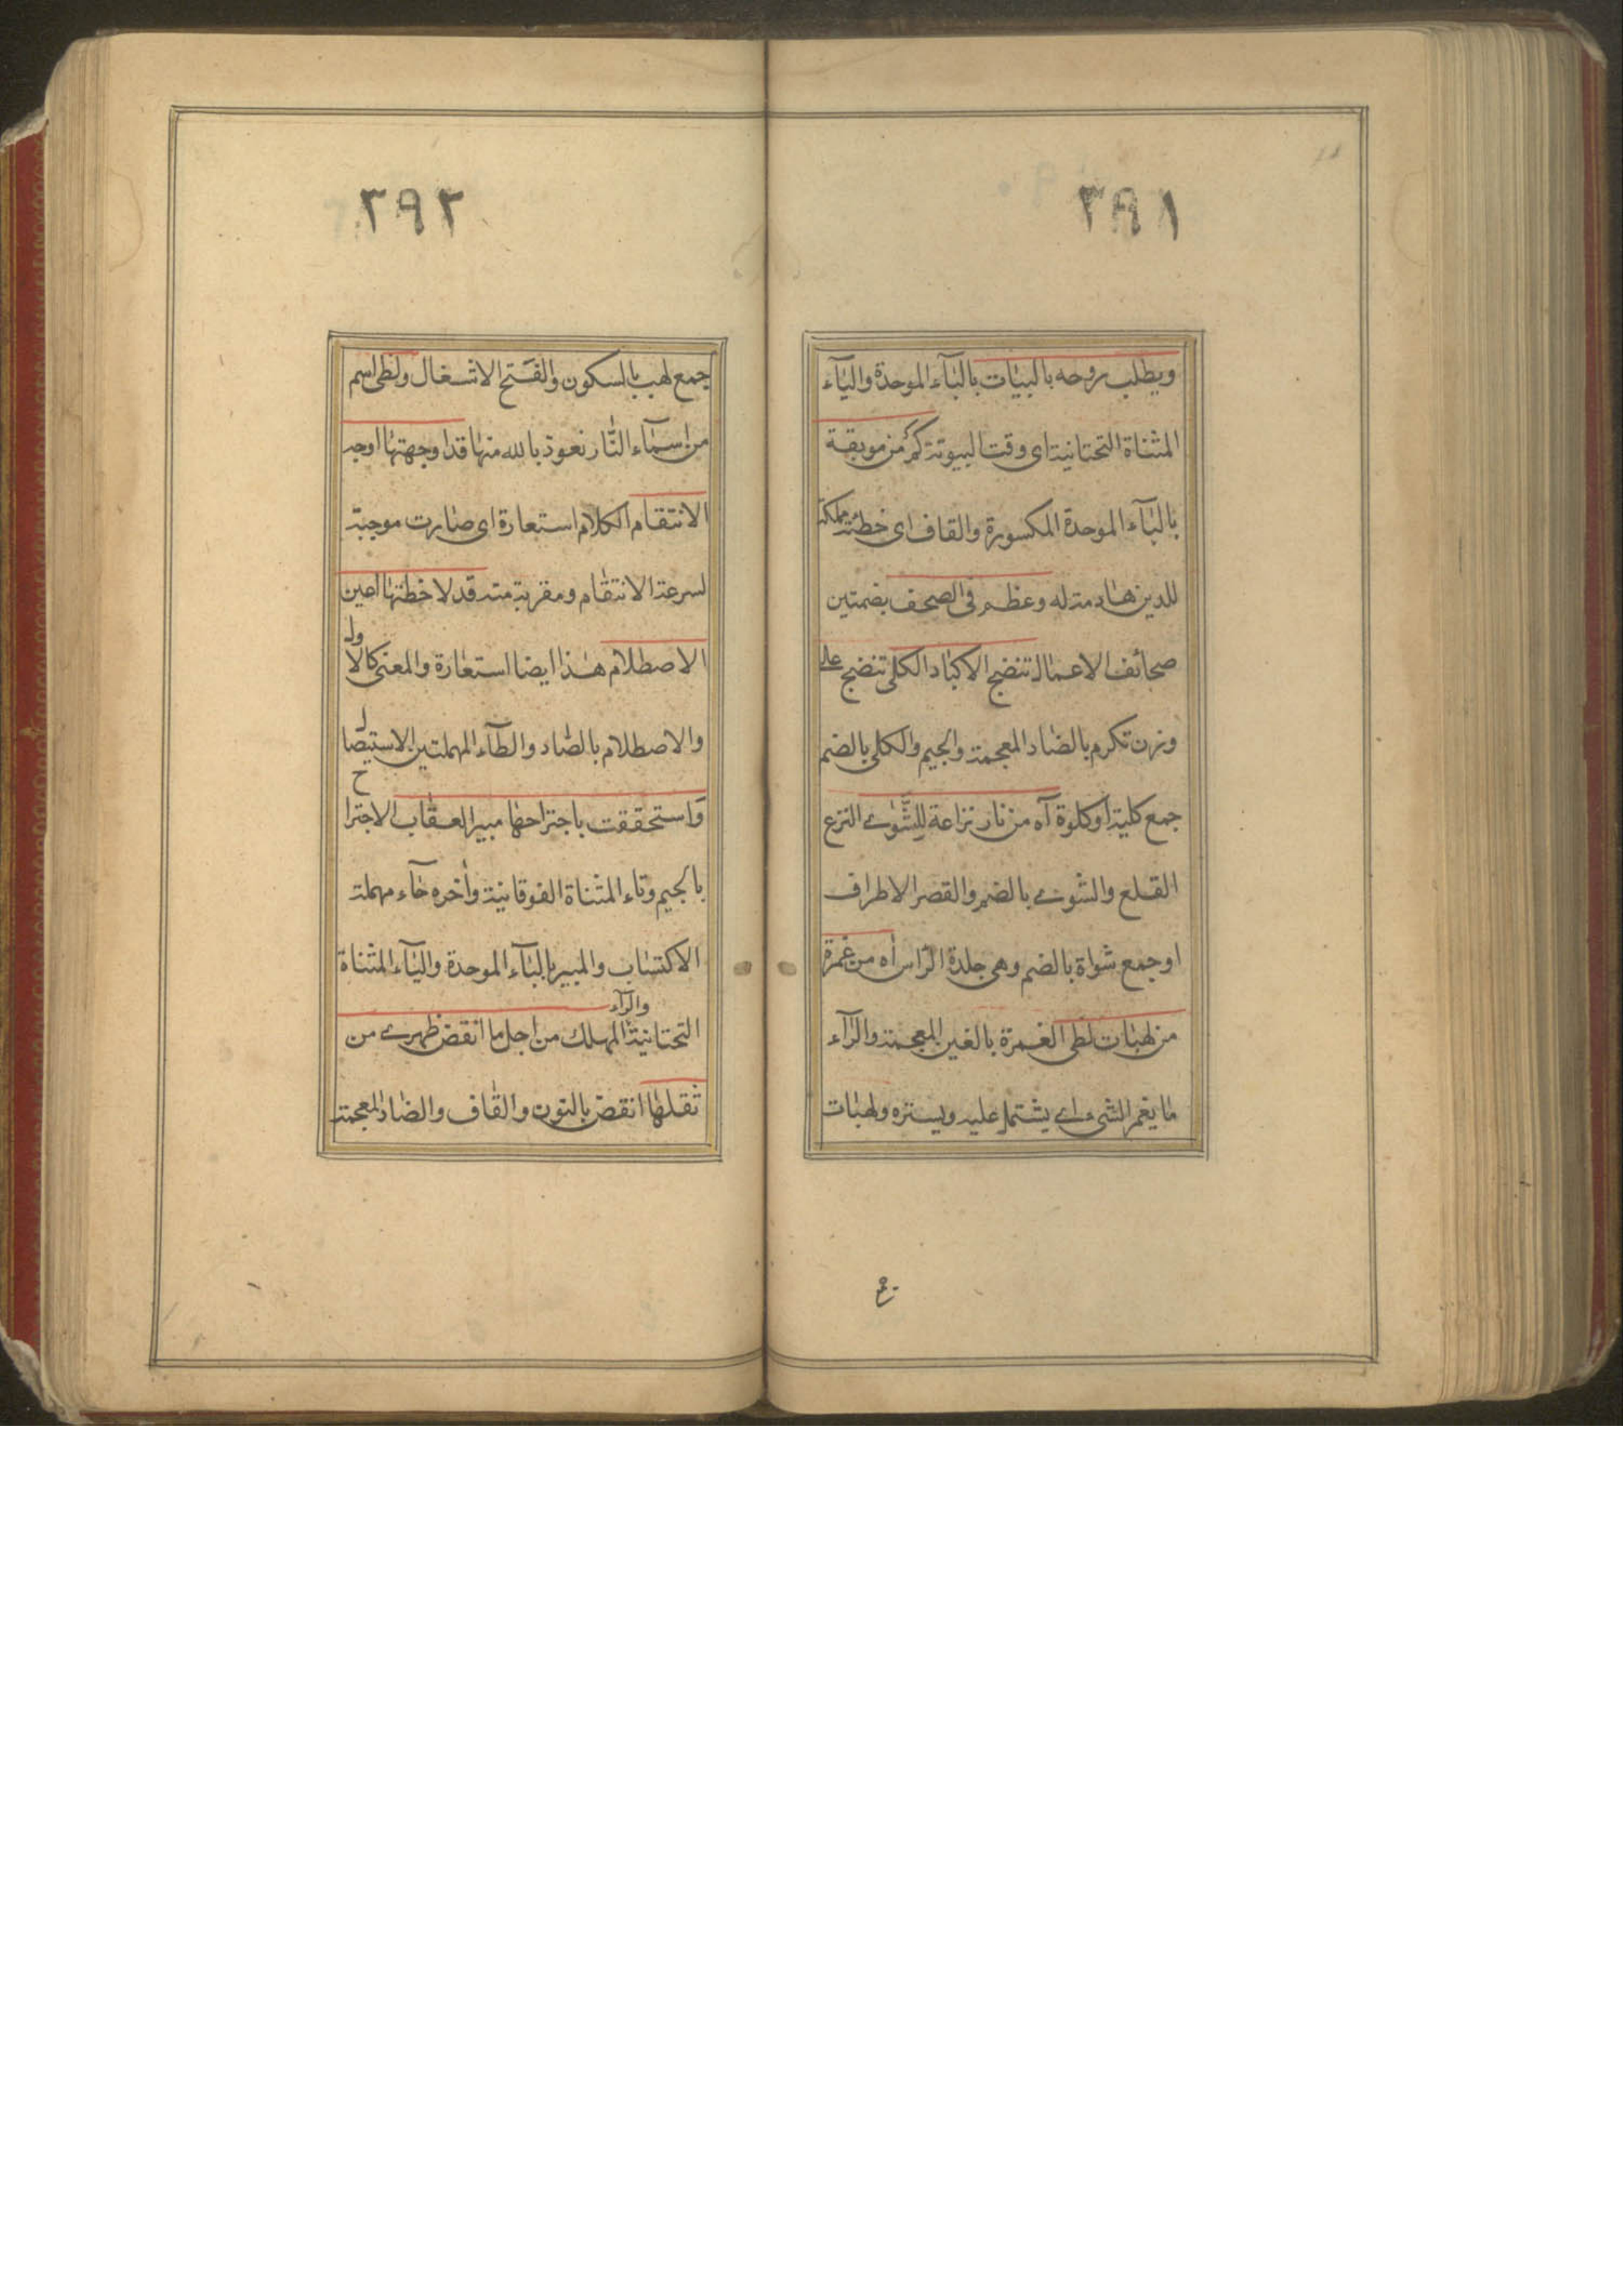 ٢٩١
ويطلب روحه بالبيات بالبآء الموحدة واليآء
المثناة التحتانية اى وقت البيوتة كم من موبقة
بالبآء الموحدة المكسورة والقاف اى خطئة مهلكة
للدين هادمة له وعظم فى الصحف بضمتين
صحائف الاعمال تنضج الاكباد الكلى تنضج على
وزن تكرم بالضاد المعجمة والجيم والكلى بالضم
جمع كلية او كلوة آه من نار نزاعة للشوى النزع
القلع والشوى بالضم والقصر الاطراف
او جمع شواة بالضم وهى جلدة الراس اه من غمرة
من لهبات لظى الغمرة بالغين المعجمة والرآء
ما يغمر الشىء اى يشتمل عليه ويستره ولهبات
٢٩٢
جمع لهب بالسكون والفتح الاشغال ولظى اسم
من اسمآء النار نعوذ بالله منها قد اوجهتها اوجه
الانتقام الكلام استعارة اى صارت موجبة
لسرعة الانتقام ومقربة منه قد لاخطتها اعين
الاصطلام هذا ايضا استعارة والمعنى كالاول
والاصطلام بالصاد والطآء المهملتين الاستيصال
واستحققت باجتراحها مبير العقاب الاجتراح
بالجيم وتاء المثناة الفوقانية وآخره حآء مهملة
الاكتساب والمبير بالبآء الموحدة واليآء المثناة
التحتانية والرآء المهلك من اجل ما انقض ظهرى من
ثقلها انقض بالنون والقاف والضاد المعجمة